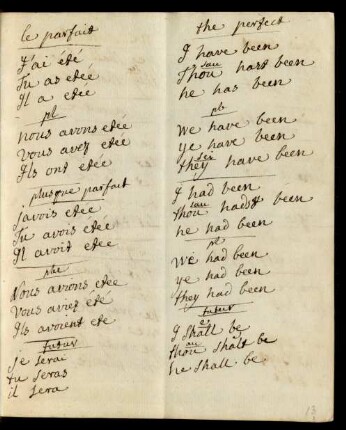 le parfait
J'ai eté
Tu as etée
Il a etée
pl
nous avons etée
vous avez etée
Ils ont etée
plusque parfait
j'avois etée
Tu avois etée
Il avoit etée
plu
Nous avions etée
Vous aviez ete
Ils avoient ete
futur
je serai
tu seras
il sera
the perfect
I have been
sau
Thou hast been
he has been
pl
We have been
ye have been
they have been
I had been
sau
thou hadst been
he had been
pl
We had been
ye had been
they had been
futur
I shall be
au
thou shalt be
he shall be
13